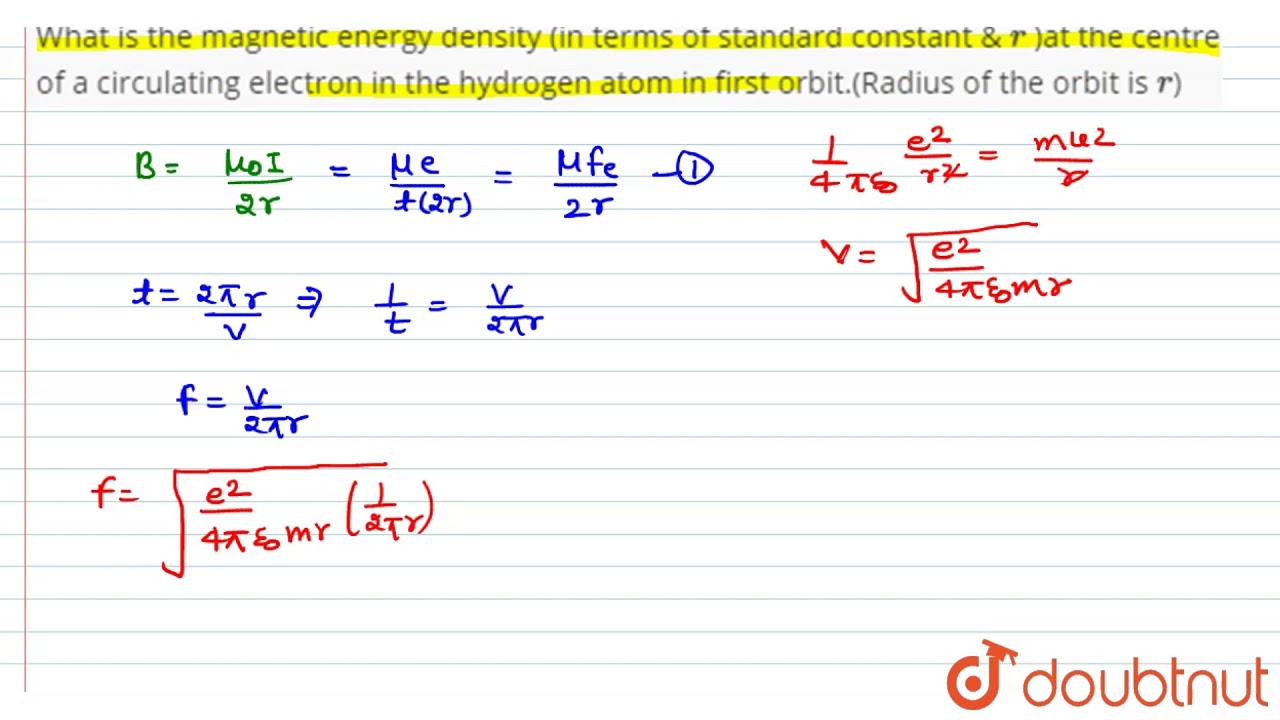 What is the magnetic energy density (in terms of standard constant & r )at the centre
of a circulating electron in the hydrogen atom in first orbit.(Radius of the orbit is r)
B = μ0I/2r = μe/t(2r) = μfe/2r —①
1/4πε0 e²/r² = mv²/r
v = √(e²/4πε0mr)
t = 2πr/v ⇒ 1/t = v/2πr
f = v/2πr
f = √(e²/4πε0mr (1/2πr))
doubtnut